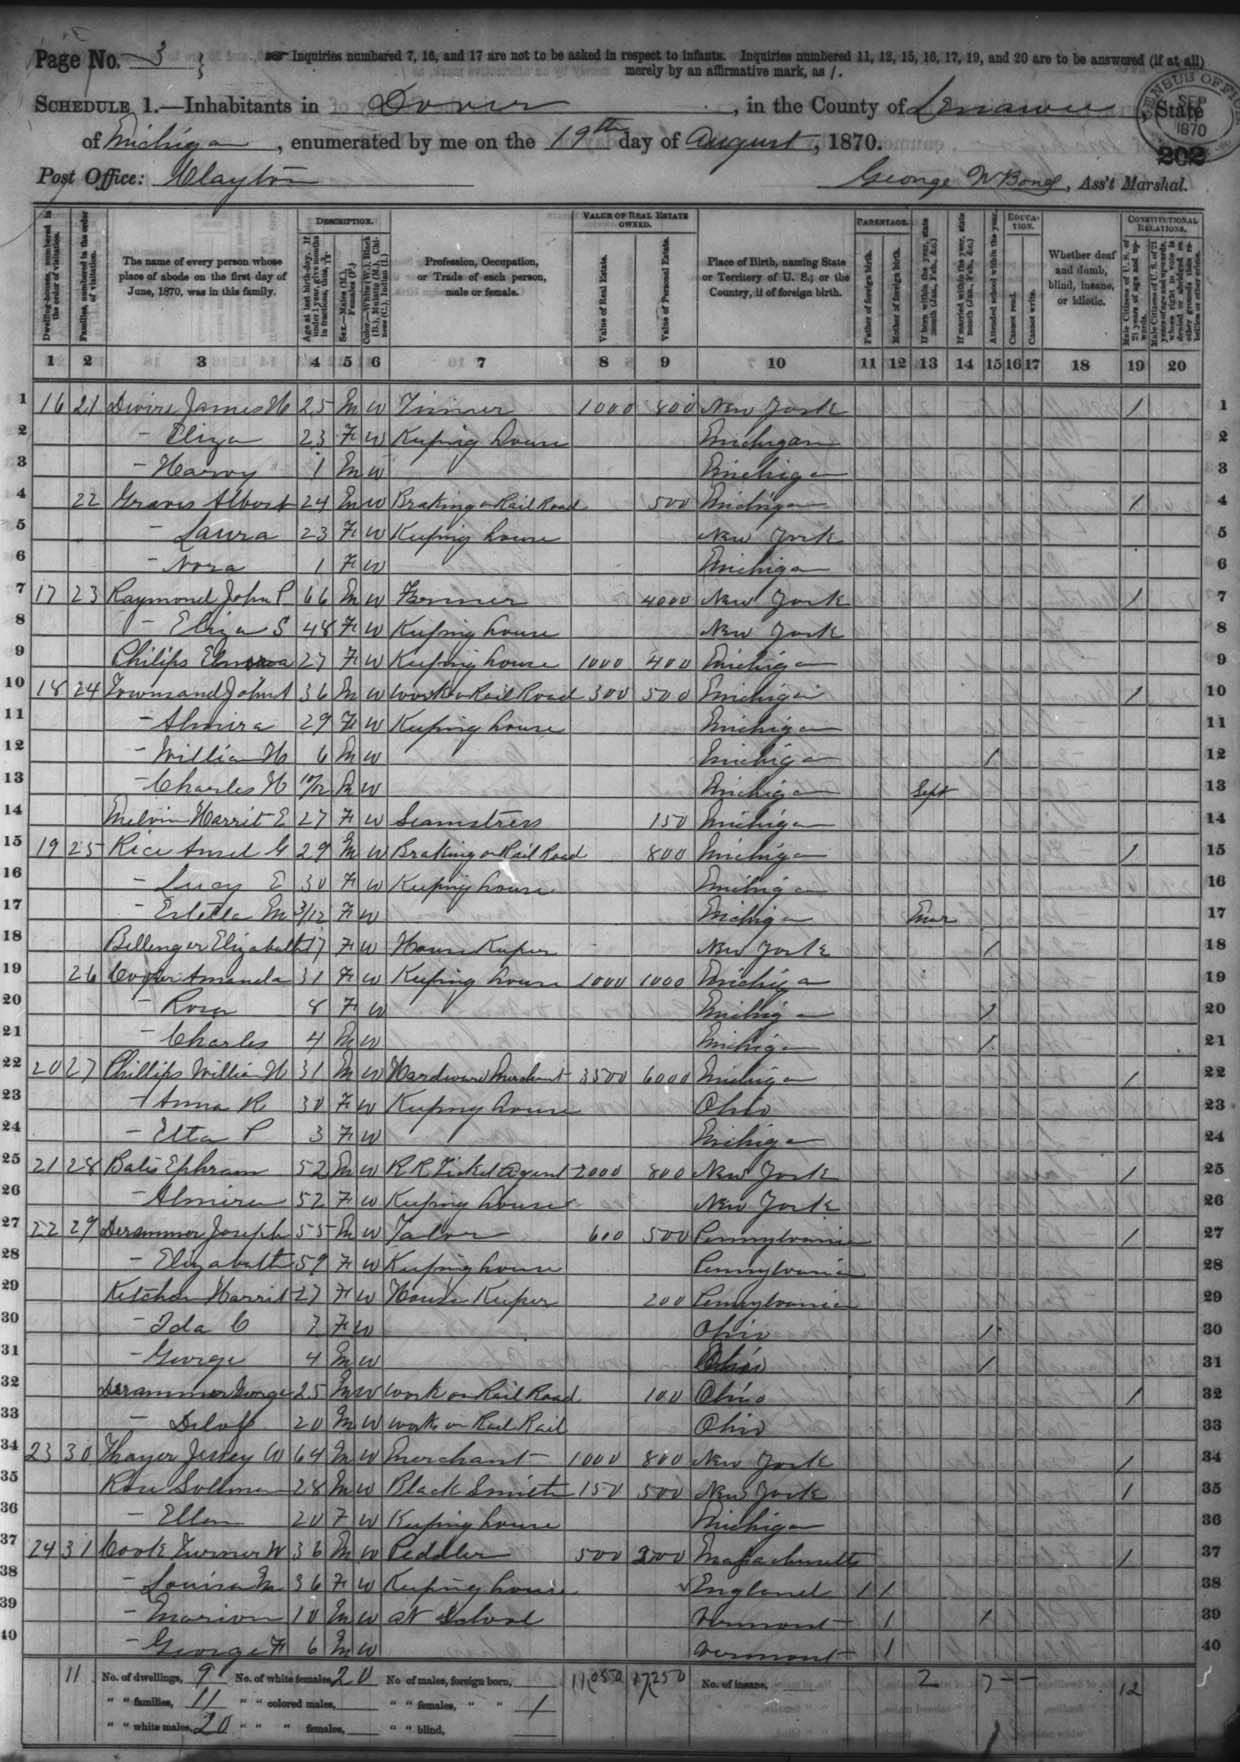 Page No. 3
Inquiries numbered 7, 16, and 17 are not to be asked in respect to infants. Inquiries numbered 11, 12, 15, 16, 17, 19, and 20 are to be answered (if at all)
merely by an affirmative mark, as /.
SCHEDULE 1.—Inhabitants in Dover, in the County of Lenawee, State
of Michigan, enumerated by me on the 19th day of August, 1870.
CENSUS OFFICE SEP 1870
202
Post Office: Clayton
George W Bond, Ass't Marshal.
Dwelling-houses, numbered in the order of visitation.
Families, numbered in the order of visitation.
The name of every person whose place of abode on the first day of June, 1870, was in this family.
DESCRIPTION.
Age at last birth-day. If under 1 year, give months in fractions, thus, 3/12
Sex.—Males (M.), Females (F.)
Color.—White (W.), Black (B.), Mulatto (M.), Chinese (C.), Indian (I.)
Profession, Occupation, or Trade of each person, male or female.
VALUE OF REAL ESTATE OWNED.
Value of Real Estate.
Value of Personal Estate.
Place of Birth, naming State or Territory of U. S.; or the Country, if of foreign birth.
PARENTAGE.
Father of foreign birth.
Mother of foreign birth.
If born within the year, state month (Jan., Feb., &c.)
If married within the year, state month (Jan., Feb., &c.)
Attended school within the year.
EDUCATION.
Cannot read.
Cannot write.
Whether deaf and dumb, blind, insane, or idiotic.
CONSTITUTIONAL RELATIONS.
Male Citizens of U. S. of 21 years of age and upwards.
Male Citizens of U. S. of 21 years of age and upwards, whose right to vote is denied or abridged on other grounds than rebellion or other crime.
1 2 3 4 5 6 7 8 9 10 11 12 13 14 15 16 17 18 19 20
1 16 21 James H 25 M W 1000 800 New York / 1
2 – Eliza 23 F W Keeping house Michigan 2
3 – Harvy 1 M W Michigan 3
4 22 Graves Albert 24 M W Braking on Rail Road 500 Michigan / 4
5 – Laura 23 F W Keeping house New York 5
6 – Nora 1 F W Michigan 6
7 17 23 Raymond John P 66 M W Farmer 4000 New York / 7
8 – Eliza S 48 F W Keeping house New York 8
9 Philips 27 F W Keeping house 1000 400 Michigan 9
10 18 24 Townsand John A 36 M W work on Rail Road 300 500 Michigan / 10
11 – Almira 29 F W Keeping house Michigan 11
12 – William H 6 M W Michigan / 12
13 – Charles H M W Michigan Sept 13
14 Melvin Harrit E 27 F W Seamstress 150 Michigan 14
15 19 25 Rice Ansel G 29 M W Braking on Rail Road 800 Michigan / 15
16 – Lucy E 30 F W Keeping house Michigan 16
17 – M 3/12 F W Michigan Mar 17
18 Bellenger Elizabeth 17 F W House Keeper New York / 18
19 26 Amanda 31 F W Keeping house 1000 1000 Michigan 19
20 – Rosa 8 F W Michigan / 20
21 – Charles 4 M W Michigan / 21
22 20 27 Phillips William H 31 M W Hardware Merchant 3500 6000 Michigan / 22
23 – Anna R 30 F W Keeping house Ohio 23
24 – Etta P 3 F W Michigan 24
25 21 28 Bates Ephram 52 M W R R Ticket Agent 2000 800 New York / 25
26 – Almira 52 F W Keeping house New York 26
27 22 29 Derammor Joseph 55 M W 600 500 Pennsylvania / 27
28 – Elizabeth 59 F W Keeping house Pennsylvania 28
29 Ketchan Harrit 27 F W House Keeper 200 Pennsylvania 29
30 – Ida C 7 F W Ohio / 30
31 – George 4 M W Ohio / 31
32 Derammor George 25 M W work on Rail Road 100 Ohio / 32
33 – 20 M W work on Rail Rail Ohio 33
34 23 30 Thayer W 64 M W Merchant 1000 800 New York / 34
35 28 M W Black Smith 150 500 New York / 35
36 – Ellen 20 F W Keeping house Michigan 36
37 24 31 Cook Turner W 36 M W Peddler 500 200 Massachusetts / 37
38 – Louisa M 36 F W Keeping house England / / 38
39 – Marion 10 M W at School Vermont / / 39
40 – George F 6 M W Vermont / 40
11 No. of dwellings, 9 No. of white females, 20 No. of males, foreign born, 11,050 17,250 No. of insane, 2 7 – – 12
" " families, 11 " " colored males, " " females, " " 1
" " white males, 20 " " " females, " " blind,